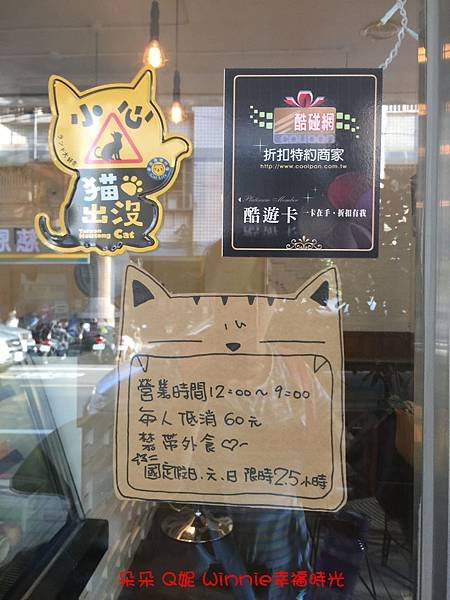 小心
猫
出沒
Taiwan
Houtong Cat
酷碰網
coolpon
折扣特約商家
http://www.coolpon.com.tw
Platinum Member
酷遊卡 一卡在手,折扣有我
營業時間12:00~9:00
每人低消60元
禁帶外食♡~
國定假日、六、日 限時2.5小時
朵朵 Q妮 Winnie幸福時光